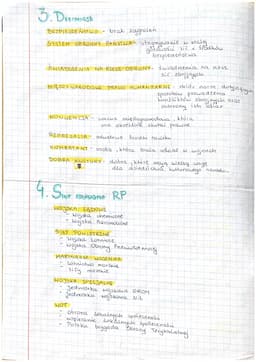 3. Definicje
BEZPIECZEŃSTWO - brak zagrożeń
SYSTEM OBRONY PAŃSTWA - utrzymywanie w stałej
gotowości sił i środków
bezpieczeństwa
ŚWIADCZENIA NA RZECZ OBRONY - świadczenia na rzecz
sił zbrojnych
MIĘDZYNARODOWE PRAWO HUMANITARNE - zbiór norm dotyczących
sposobów prowadzenia
konfliktów zbrojnych oraz
ochrony ich ofiar
KONWENCJA - umowa międzynarodowa, która
ma określone skutki prawne
REPRESALIA - odwetowe
KOMBATANT - osoba, która brała udział w wojnach
DOBRA KULTURY - dobra, które mają wielką wagę
dla dziedzictwa kulturowego narodu
4. Siły zbrojne RP
WOJSKA LĄDOWE
- wojska
- wojska
SIŁY POWIETRZNE
- wojska lotnicze
- wojska Obrony Przeciwlotniczej
MARYNARKA WOJENNA
- lotnictwo morskie
- siły morskie
WOJSKA SPECJALNE
- jednostka wojskowa GROM
- jednostka wojskowa NIL
WOT
- obrona lokalnych społeczności
- wspieranie lokalnych społeczności
- Polska brygada Obrony Terytorialnej